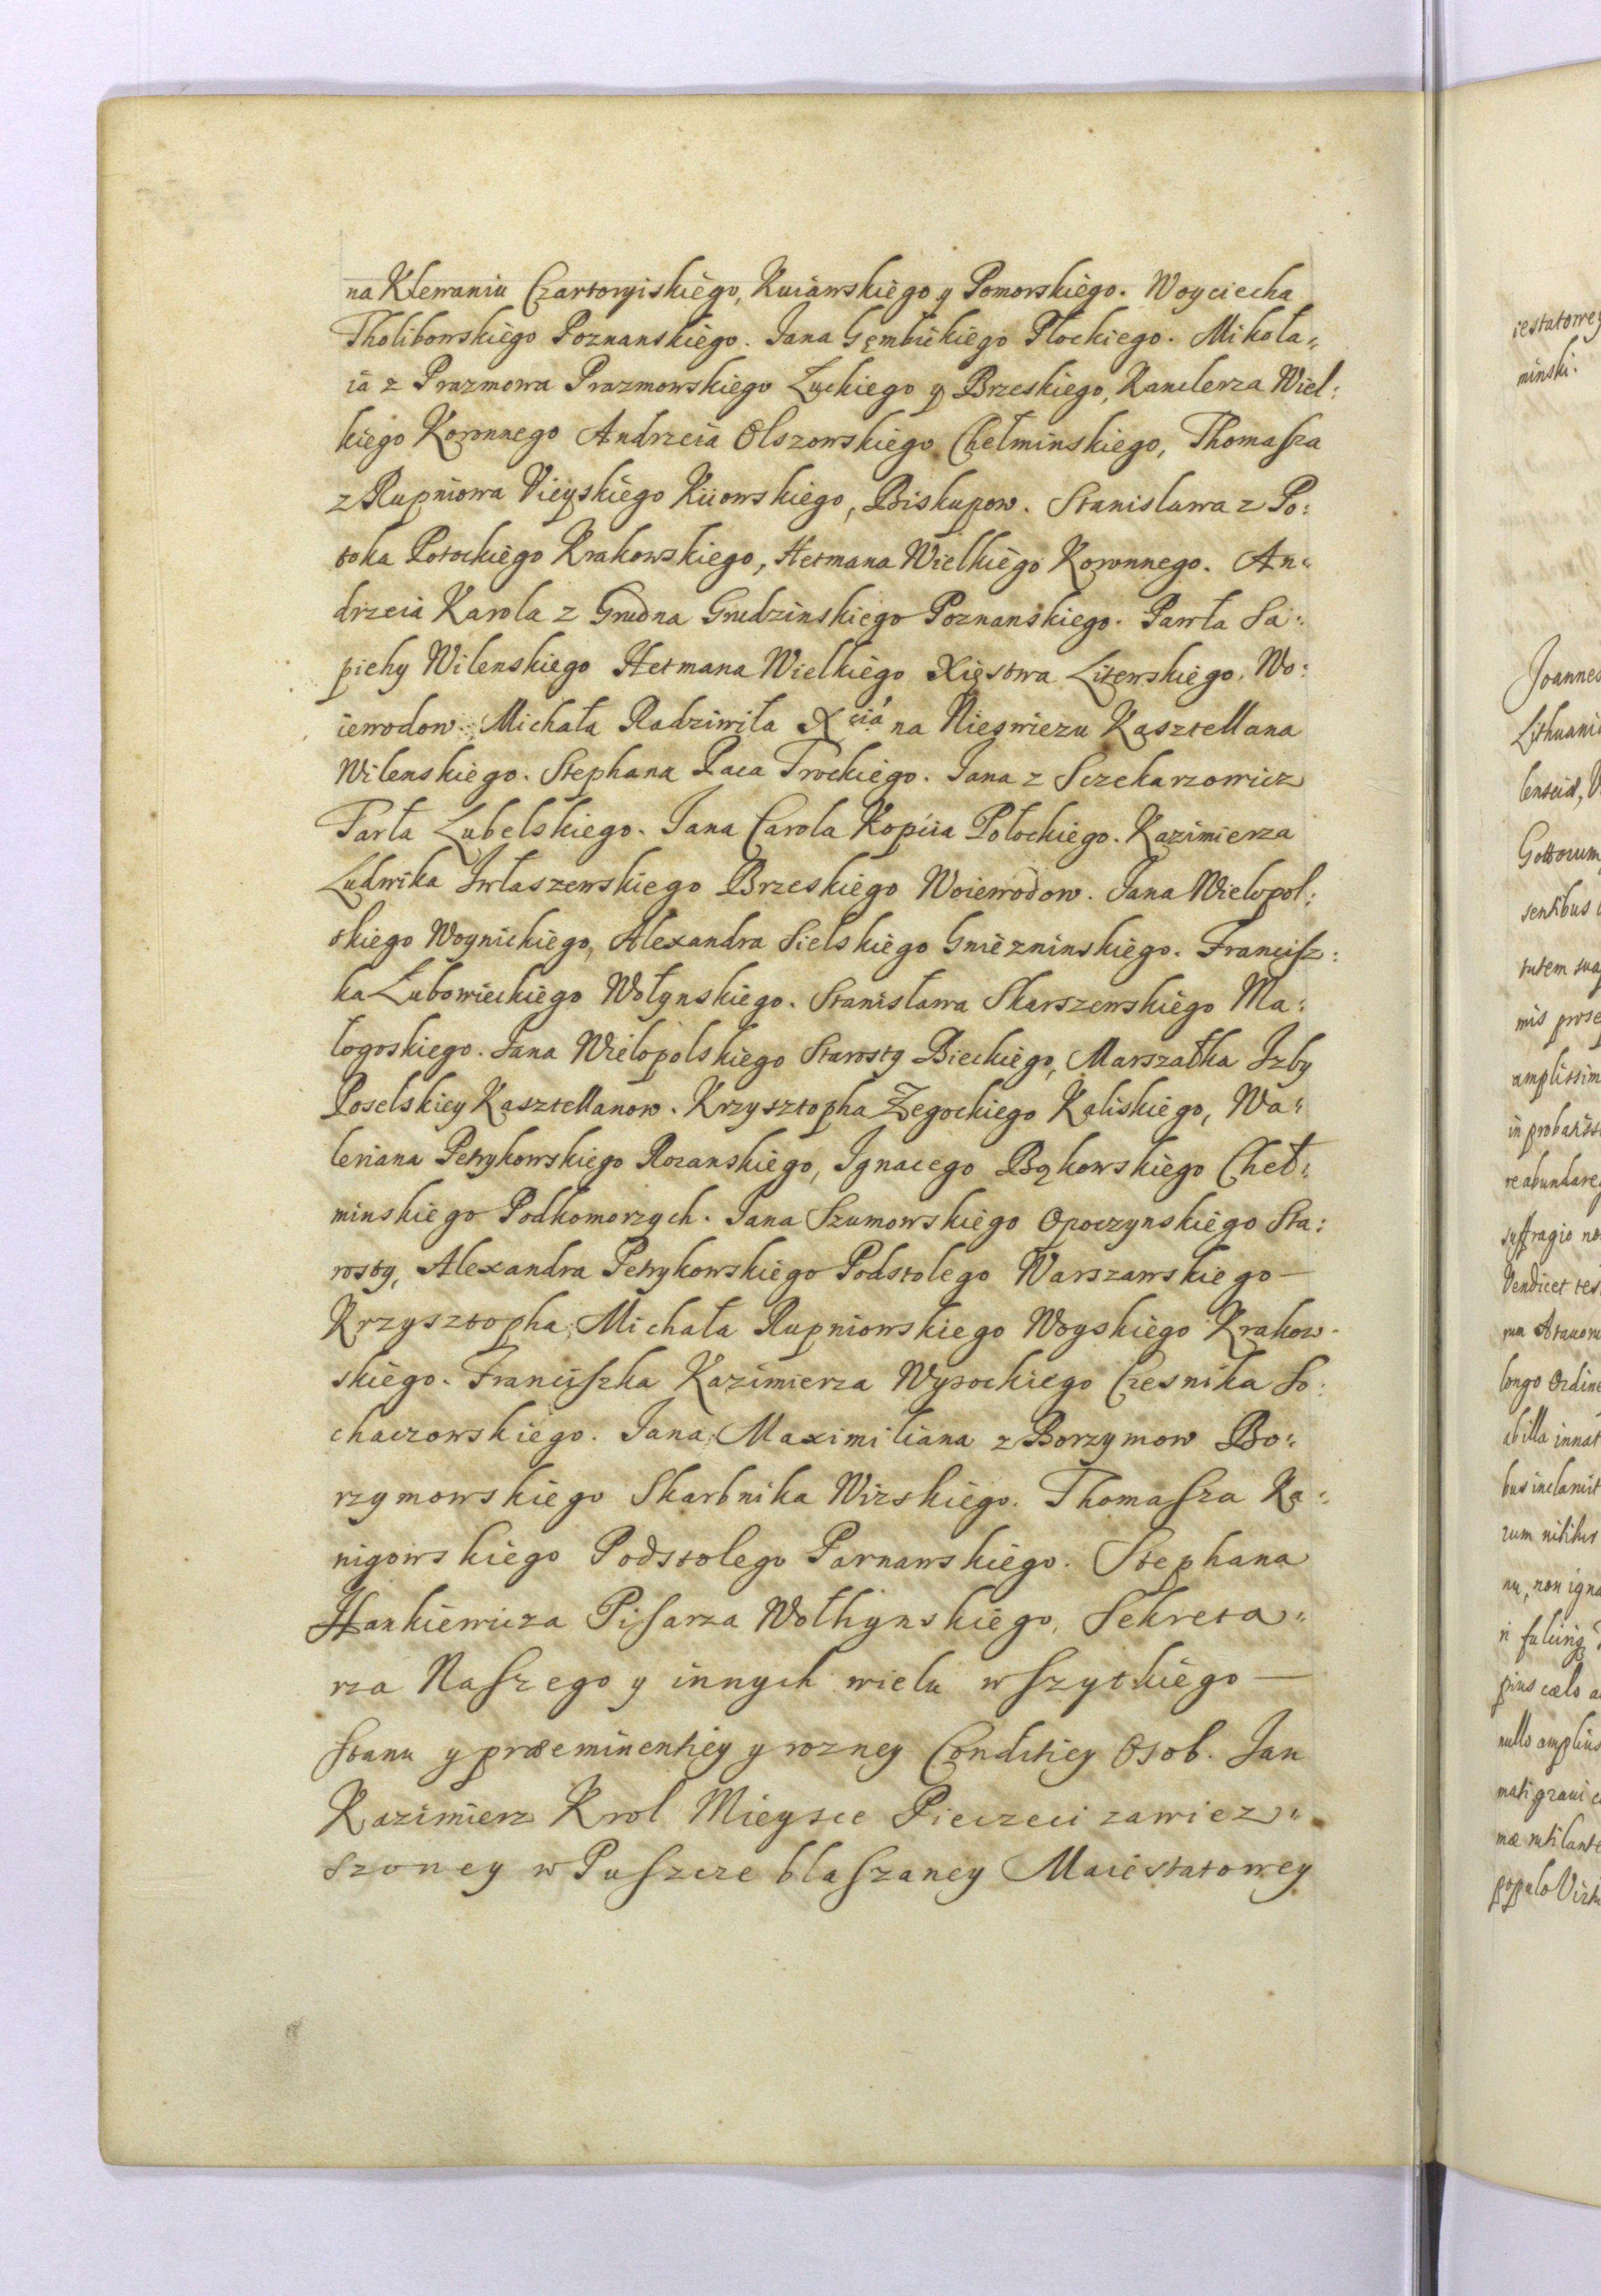 na Klewaniu Czartoryiskiego, Kuiawskiego y Pomorskiego. Woyciecha
Tholibowskiego Poznanskiego. Jana Gembickiego Płockiego. Mikoła=
ia z Prazmowa Prazmowskiego Łuckiego y Brzeskiego, Kanclerza Wiel:
kiego Koronnego Andrzeia Olszowskiego Chełminskiego, Thomasza
z Rupniowa Uieyskiego Kiiowskiego, Biskupow. Stanislawa z Po:
toka Potockiego Krakowskiego, Hetmana Wielkiego Koronnego. An=
drzeia Karola z Grudna Grudzinskiego Poznanskiego. Pawła Sa:
piehy Wilenskiego Hetmana Wielkiego Xięstwa Litewskiego. Wo:
iewodow. Michała Radziwiła Xcia na Nieswiezu Kasztellana
Wilenskiego. Stephana Paca Trockiego. Jana z Sczekarzowicz
Tarła Lubelskiego. Jana Carola Kopcia Połockiego. Kazimierza
Ludwika Jwłaszewskiego Brzeskiego Woiewodow. Jana Wielopol:
skiego Woynickiego, Alexandra Sielskiego Gniezninskiego. Francisz:
ka Lubowieckiego Wołynskiego. Stanisława Skarszewskiego Ma:
łogoskiego. Jana Wielopolskiego Starosty Bieckiego, Marszałka Jzby
Poselskiey Kasztellanow. Krzysztopha Żegockiego Kaliskiego, Wa=
leriana Petrykowskiego Rozanskiego, Jgnacego Bąkowskiego Cheł=
minskiego Podkomorzych. Jana Szumowskiego Opoczynskiego Sta:
rosty, Alexandra Petrykowskiego Podstolego Warszawskiego —
Krzysztopha Michała Rupniowskiego Woyskiego Krakow-
skiego. Franciszka Kazimierza Wysockiego Czesnika So:
chaczowskiego. Jana Maximiliana z Borzymow Bo=
rzymowskiego Skarbnika Wizskiego. Thomasza Ka=
nigowskiego Podstolego Parnawskiego. Stephana
Hankiewicza Pisarza Wołhynskiego, Sekreta=
rza Naszego y innych wielu wszytkiego —
stanu y præeminentiey y rozney Conditiey Osob. Jan
Kazimierz Krol Mieysce Pieczeci zawiez=
szoney w Puszcze blaszaney Maiestatowey
iestatowey
minski.
Joannes
Gottorum
sentibus
tutem
mis
amplissim
in probatiss
re abundare
suffragio no
Vendicet
longo Ordine
ab illa innat
bus inclaruit
rum nititur
nu, non igna
pius cælo
nullo amplius
mati graui
mæ rutilant
populo